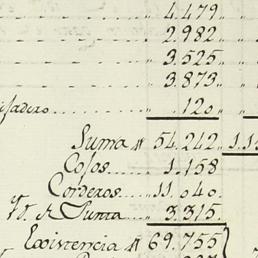 4.479
2.982
3.525
3.873
120
Suma # 54.242
Cojos 1.158
Corderos 11.040
Yd. de Junta 3.315
Existencia # 69.755